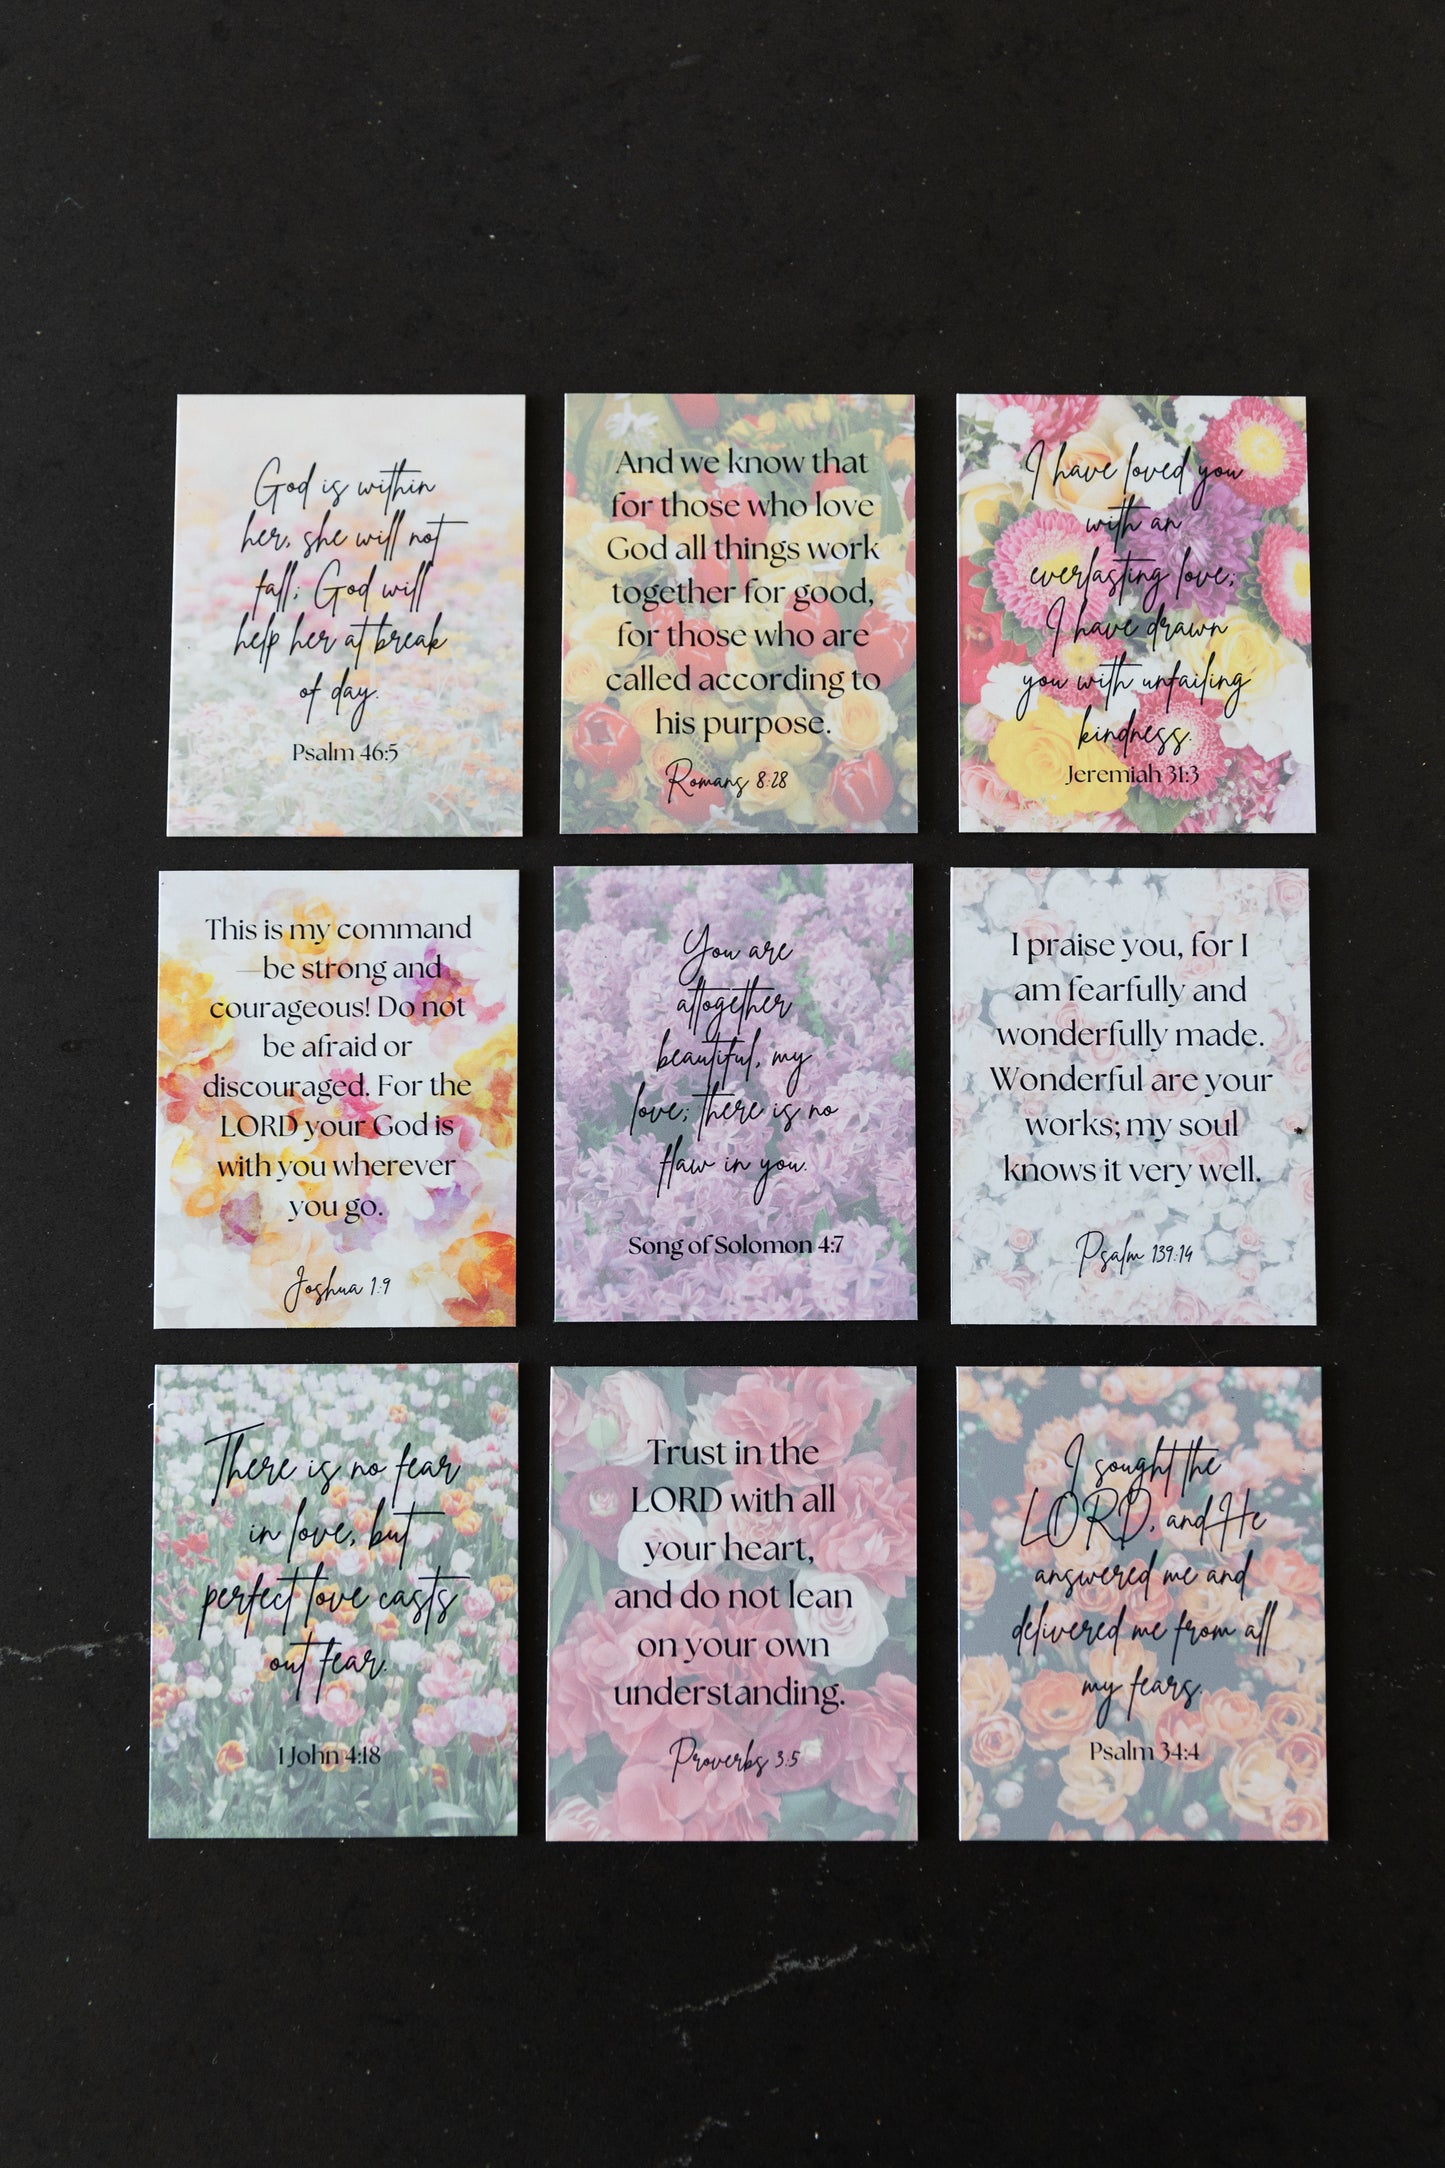 God is within
her, she will not
fall; God will
help her at break
of day.
Psalm 46:5
And we know that
for those who love
God all things work
together for good,
for those who are
called according to
his purpose.
Romans 8:28
I have loved you
with an
everlasting love;
I have drawn
you with unfailing
kindness.
Jeremiah 31:3
This is my command
—be strong and
courageous! Do not
be afraid or
discouraged. For the
LORD your God is
with you wherever
you go.
Joshua 1:9
You are
altogether
beautiful, my
love; there is no
flaw in you.
Song of Solomon 4:7
I praise you, for I
am fearfully and
wonderfully made.
Wonderful are your
works; my soul
knows it very well.
Psalm 139:14
There is no fear
in love, but
perfect love casts
out fear.
1 John 4:18
Trust in the
LORD with all
your heart,
and do not lean
on your own
understanding.
Proverbs 3:5
I sought the
LORD, and He
answered me and
delivered me from all
my fears.
Psalm 34:4